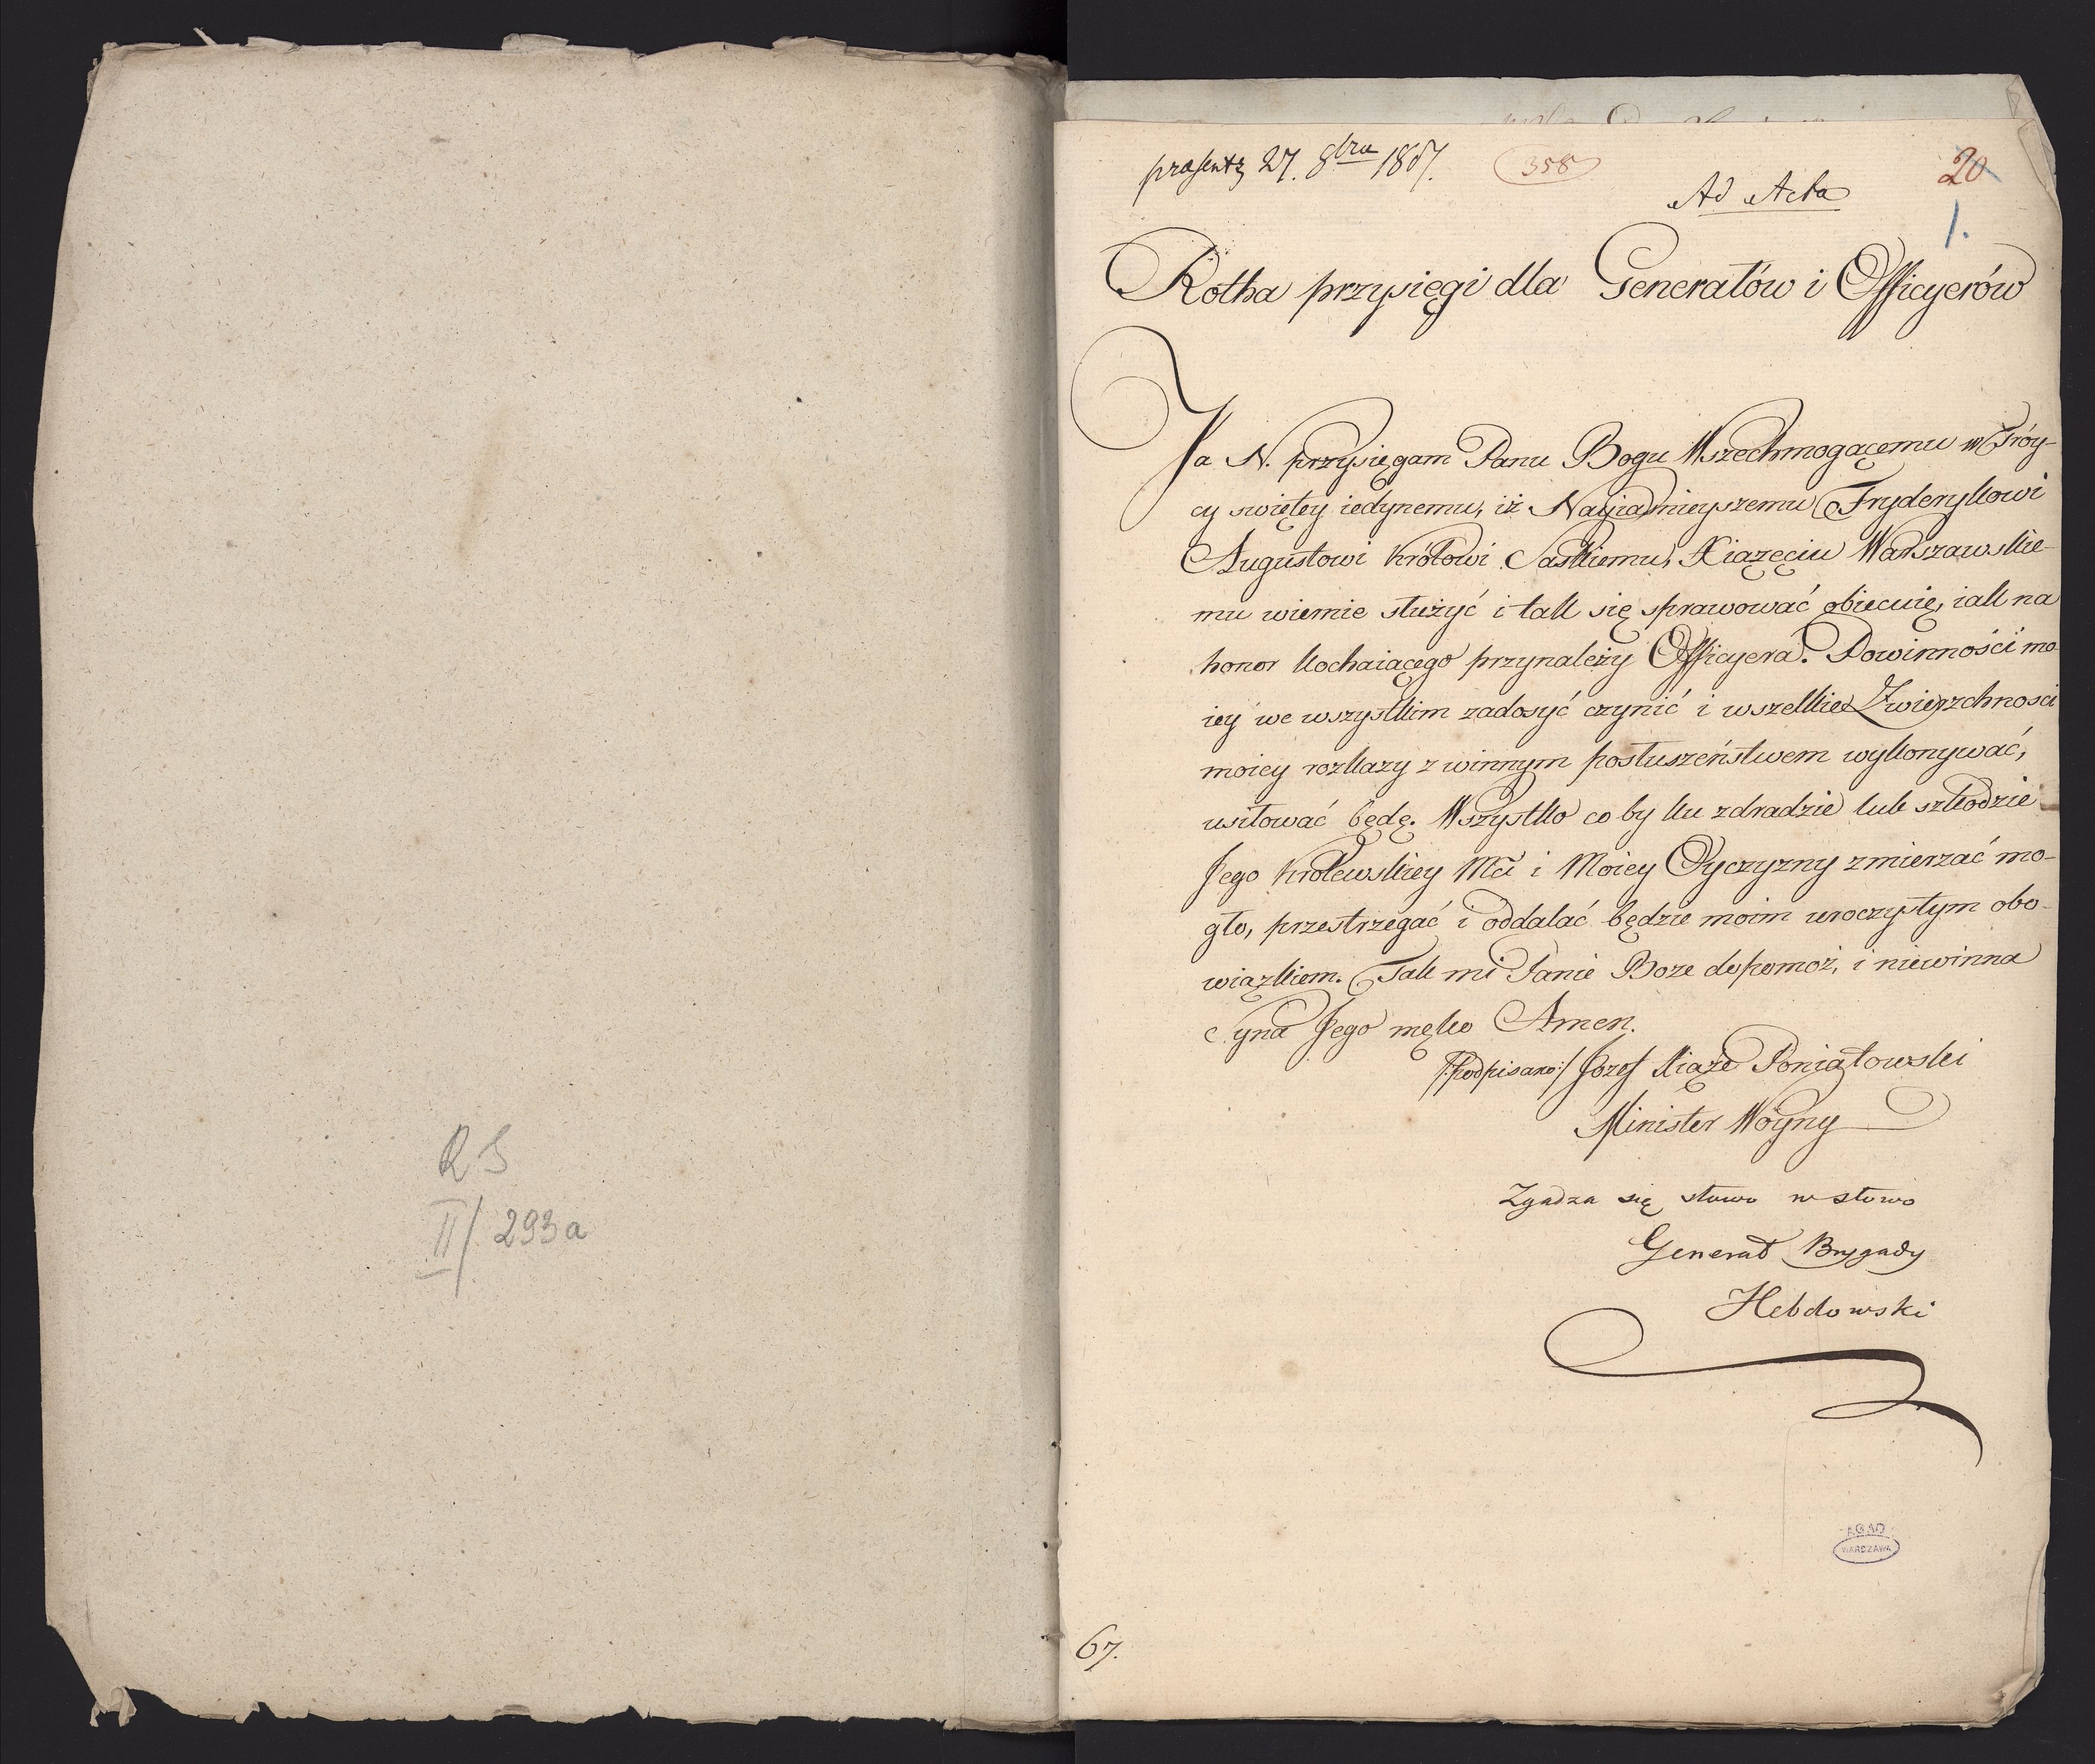 RS
II/293a
prasentz 27. 8bra 1807.
358
20
Ad Acta
1.
Rotha przysięgi dla Generałów i Officyerów
Ja N. przysięgam Panu Bogu Wszechmogącemu w Tróy-
cy swiętey iedynemu, iż Nayiasnieyszemu Fryderykowi
Augustowi Królowi Saskiemu, Xiążęciu Warszawskie-
mu wiernie służyć i tak się sprawować obiecuię, iak na
honor kochaiącego przynależy Officyera. Powinności mo-
iey we wszystkim zadosyć czynić i wszelkie Zwierzchnosci
moiey rozkazy z winnym posłuszeństwem wykonywać,
usiłować będę. Wszystko co by ku zdradzie lub szkodzie
Jego Królewskiey Mći i Moiey Oyczyzny zmierzać mo-
gło, przestrzegać i oddalać będzie moim uroczystym obo-
wiązkiem. Tak mi Panie Boże dopomoż, i niewinna
Syna Jego męko Amen.
/:podpisano:/ Jozef Xiąże Poniatowski
Minister Woyny
Zgadza się słowo w słowo
Generał Brygady
Hebdowski
AGAD
WARSZAWA
67.